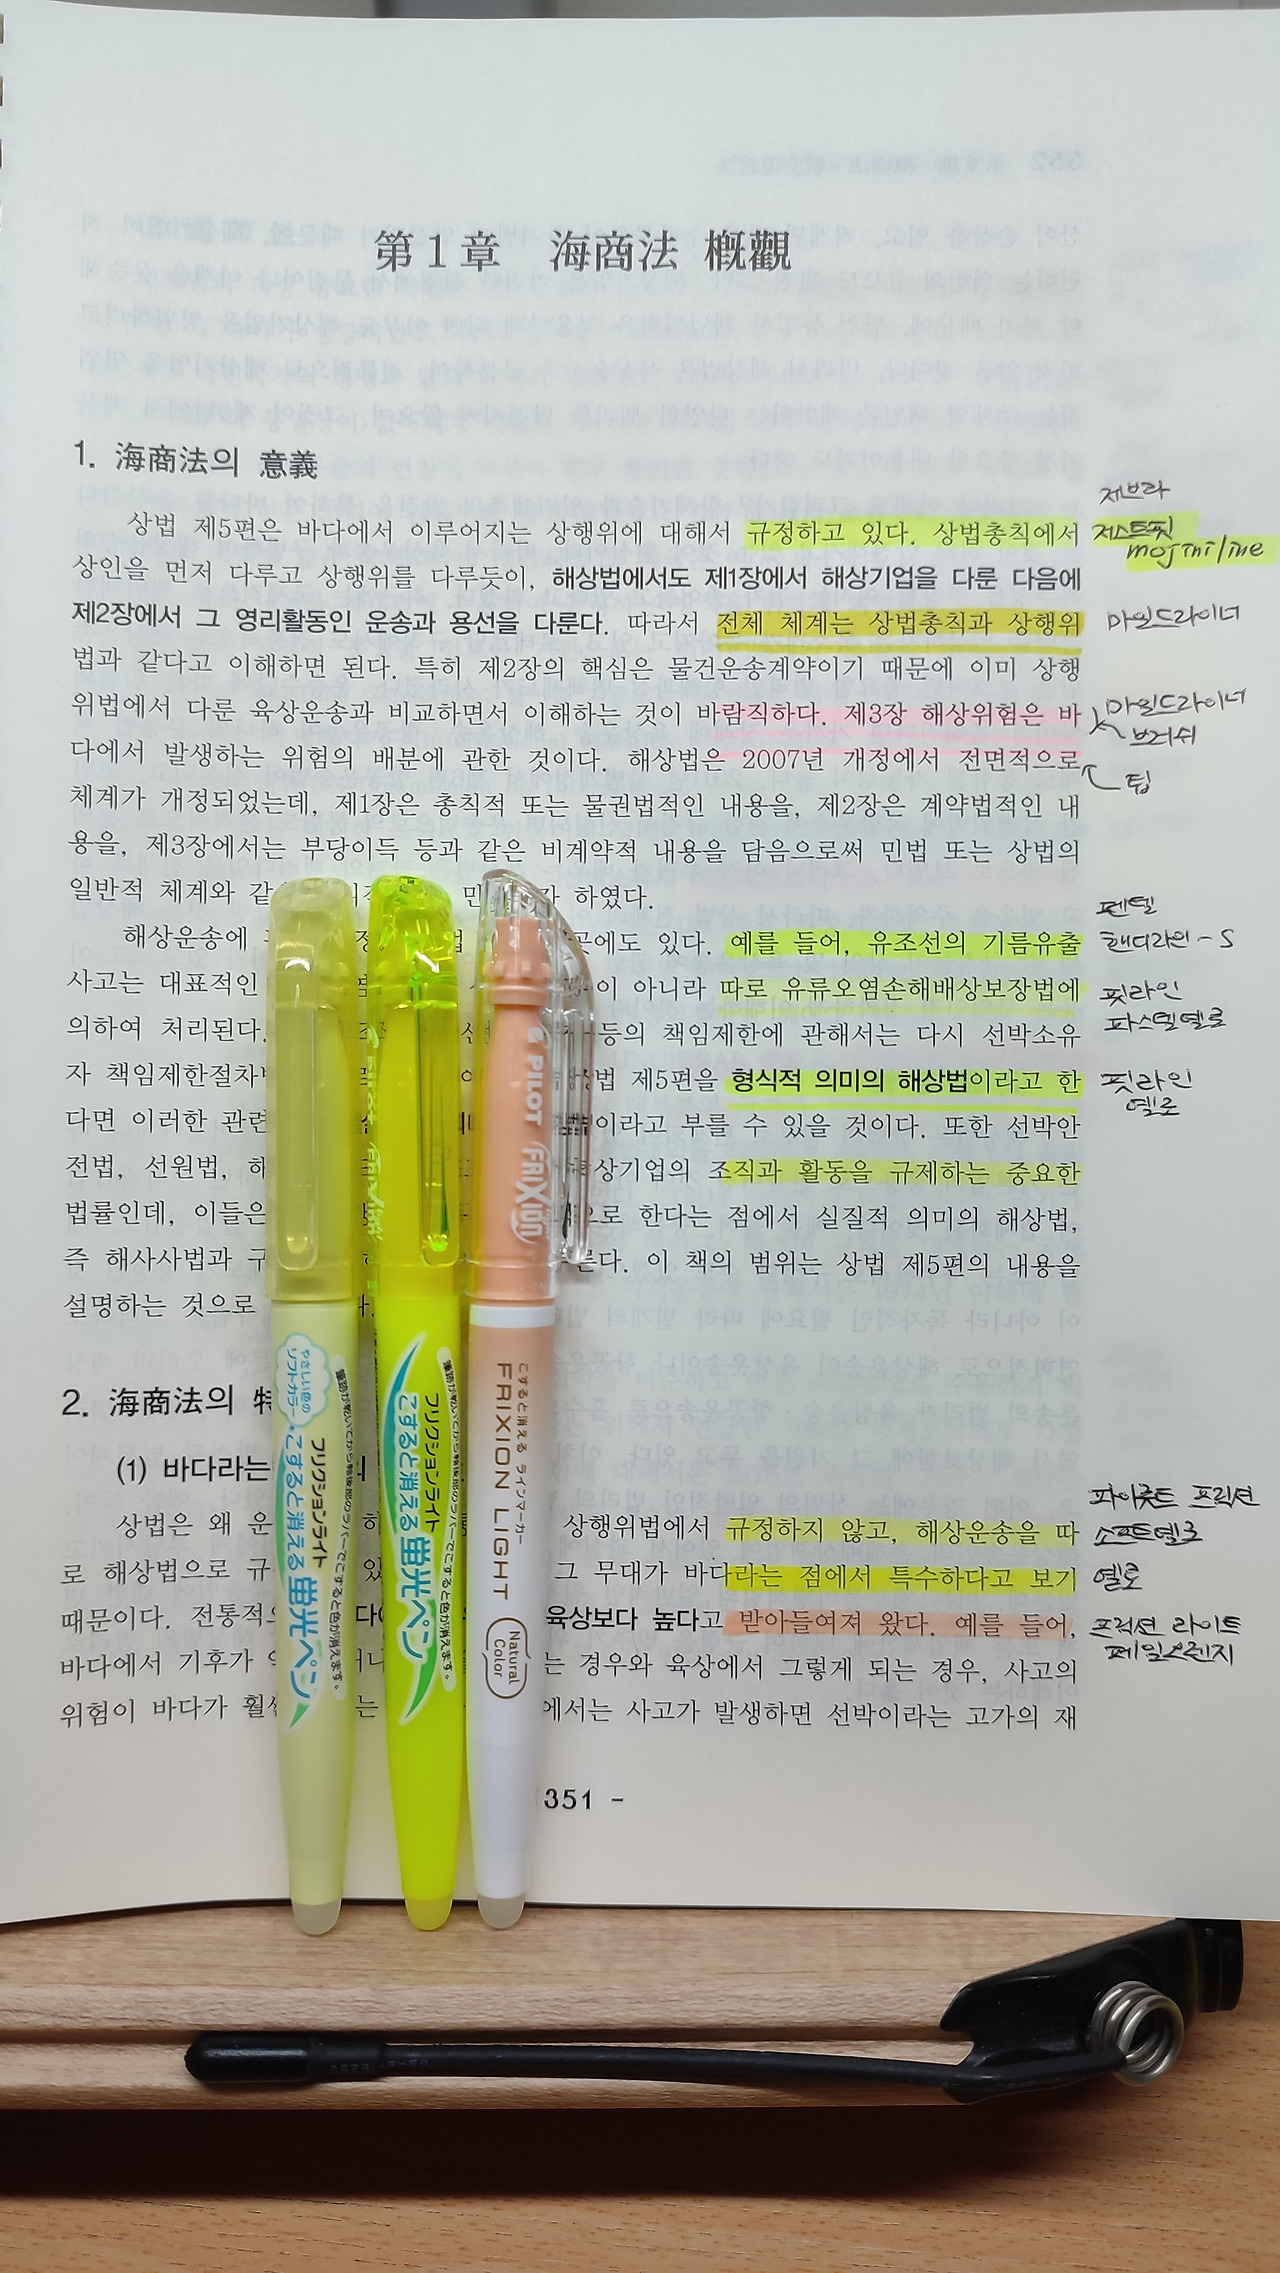 第1章 海商法 槪觀
1. 海商法의 意義
상법 제5편은 바다에서 이루어지는 상행위에 대해서 규정하고 있다. 상법총칙에서
상인을 먼저 다루고 상행위를 다루듯이, 해상법에서도 제1장에서 해상기업을 다룬 다음에
제2장에서 그 영리활동인 운송과 용선을 다룬다. 따라서 전체 체계는 상법총칙과 상행위
법과 같다고 이해하면 된다. 특히 제2장의 핵심은 물건운송계약이기 때문에 이미 상행
위법에서 다룬 육상운송과 비교하면서 이해하는 것이 바람직하다. 제3장 해상위험은 바
다에서 발생하는 위험의 배분에 관한 것이다. 해상법은 2007년 개정에서 전면적으로
체계가 개정되었는데, 제1장은 총칙적 또는 물권법적인 내용을, 제2장은 계약법적인 내
용을, 제3장에서는 부당이득 등과 같은 비계약적 내용을 담음으로써 민법 또는 상법의
일반적 체계와 하였다.
해상운송에 있다. 예를 들어, 유조선의 기름유출
사고는 대표적인 아니라 따로 유류오염손해배상보장법에
의하여 처리된다. 등의 책임제한에 관해서는 다시 선박소유
자 책임제한절차 제5편을 형식적 의미의 해상법이라고 한
다면 이러한 관련 이라고 부를 수 있을 것이다. 또한 선박안
전법, 선원법, 해상기업의 조직과 활동을 규제하는 중요한
법률인데, 이들은 으로 한다는 점에서 실질적 의미의 해상법,
즉 해사사법과 이 책의 범위는 상법 제5편의 내용을
설명하는 것으로
2. 海商法의
(1) 바다라는
상법은 왜 상행위법에서 규정하지 않고, 해상운송을 따
로 해상법으로 그 무대가 바다라는 점에서 특수하다고 보기
때문이다. 육상보다 높다고 받아들여져 왔다. 예를 들어,
바다에서 기후가 는 경우와 육상에서 그렇게 되는 경우, 사고의
위험이 바다가 에서는 사고가 발생하면 선박이라는 고가의 재
351 -
제브라
저스트핏
mojiniline
마일드라이너
마일드라이너
브러쉬
팁
펜텔
핸디라인-S
핏라인
파스텔옐로
핏라인
옐로
파이롯트 프릭션
소프트옐로
옐로
프릭션 라이트
페일오렌지
PILOT FRIXION
やさしい色の
ソフトカラー
フリクションライト
こすると消える 蛍光ペン
筆跡が乾いてから専後部のラバーでこすると色が消えます。
PILOT
フリクションライト
こすると消える 蛍光ペン
PILOT FRIXION
こすると消える ラインマーカー
FRIXION LIGHT
Natural
Color